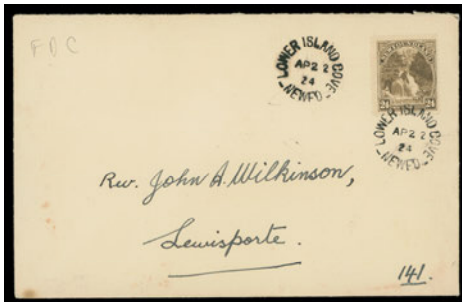 FDC
LOWER ISLAND COVE
AP 22
24
NEWFD
NEWFOUNDLAND
24 24
LOWER ISLAND COVE
AP 22
24
NEWFD
Rev. John A. Wilkinson,
Lewisporte.
141.